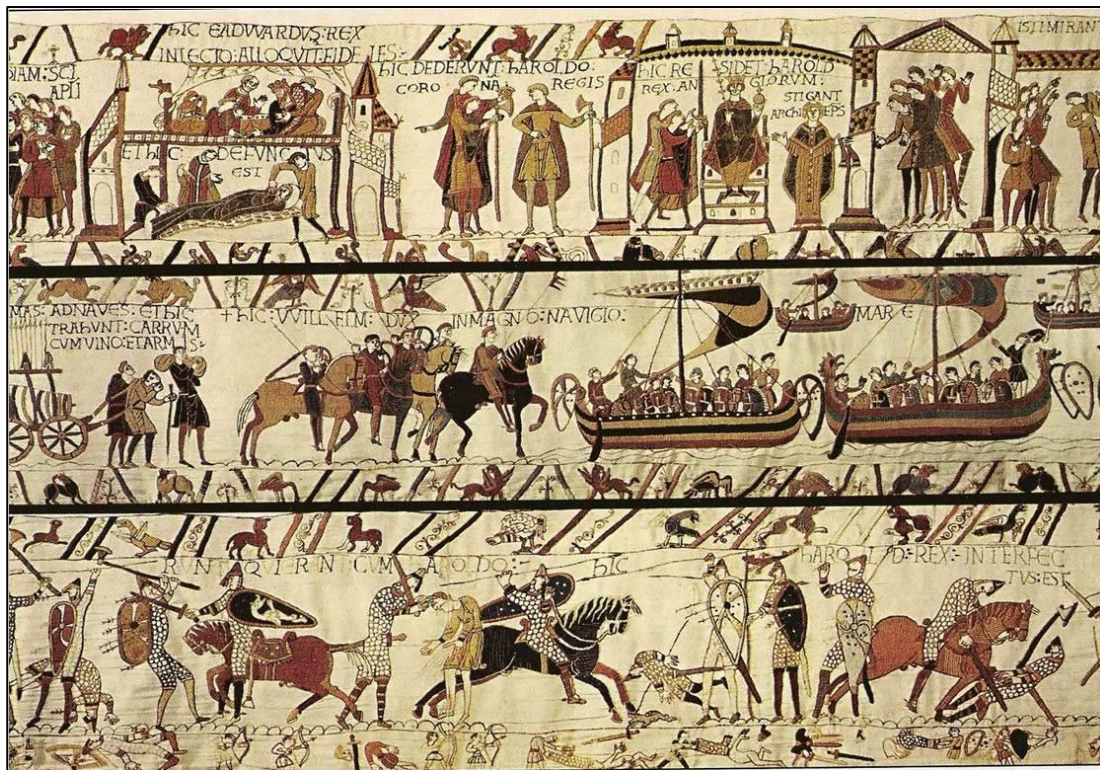 HIC EADVVARDVS: REX
IN LECTO: ALLOQVIT: FIDELES:
IAM: SCI
APLI
ET HIC DEFVNCTVS
EST
HIC DEDERVNT: HAROLDO:
CORONA REGIS
HIC RESIDET: HAROLD
REX: ANGLORVM:
STIGANT
ARCHIEPS
ISTI MIRANT
MAS: AD NAVES: ET HIC
TRAHVNT: CARRVM
CVM VINO: ET ARMIS:
+ HIC: VVILLELM: DVX IN MAGNO: NAVIGIO:
MARE
RVNT QVI ERANT CVM HAROLDO:
HIC HAROLD: REX: INTERFEC
TVS: EST